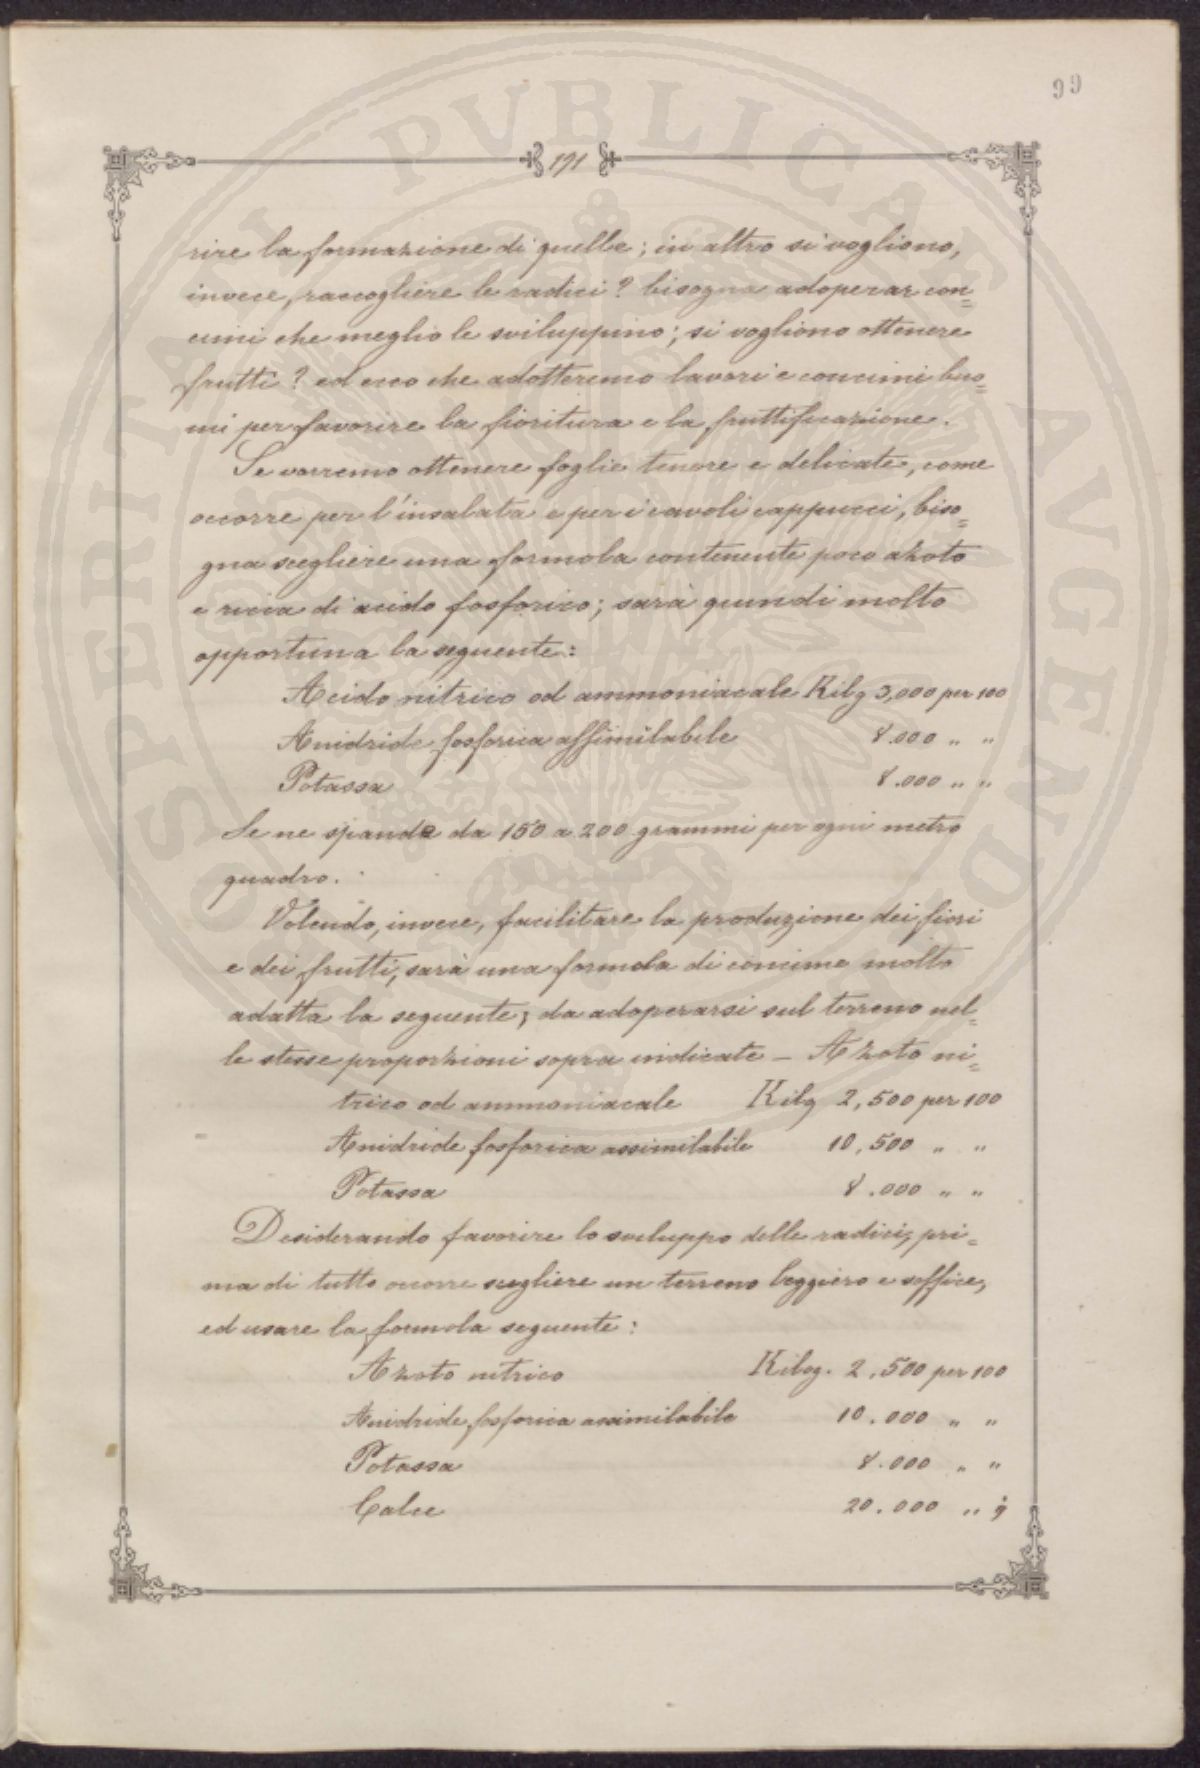 99
191
rire la formazione di quelle; in altro si vogliono,
invece, raccogliere le radici? bisogna adoperar con=
cimi che meglio le sviluppino; si vogliono ottenere
frutti? ed ecco che adotteremo lavori e concimi buo=
ni per favorire la fioritura e la fruttificazione.
Se vorremo ottenere foglie tenere e delicate, come
occorre per l'insalata e per i cavoli cappucci, biso=
gna scegliere una formola contenente poco azoto
e ricca di acido fosforico; sarà quindi molto
opportuna la seguente:
Acido nitrico od ammoniacale Kilg 3,000 per 100
Anidride fosforica assimilabile 8.000 " "
Potassa 8.000 " "
Se ne spande da 150 a 200 grammi per ogni metro
quadro.
Volendo, invece, facilitare la produzione dei fiori
e dei frutti, sarà una formola di concime molto
adatta la seguente; da adoperarsi sul terreno nel=
le stesse proporzioni sopra indicate - Azoto ni=
trico od ammoniacale Kilg 2,500 per 100
Anidride fosforica assimilabile 10,500 " "
Potassa 8.000 " "
Desiderando favorire lo sviluppo delle radici, pri=
ma di tutto occorre scegliere un terreno leggiero e soffice,
ed usare la formola seguente:
Azoto nitrico Kilog. 2,500 per 100
Anidride fosforica assimilabile 10.000 " "
Potassa 8.000 " "
Calce 20.000 " "
PROSPERITATI PVBLICAE AVGENDAE